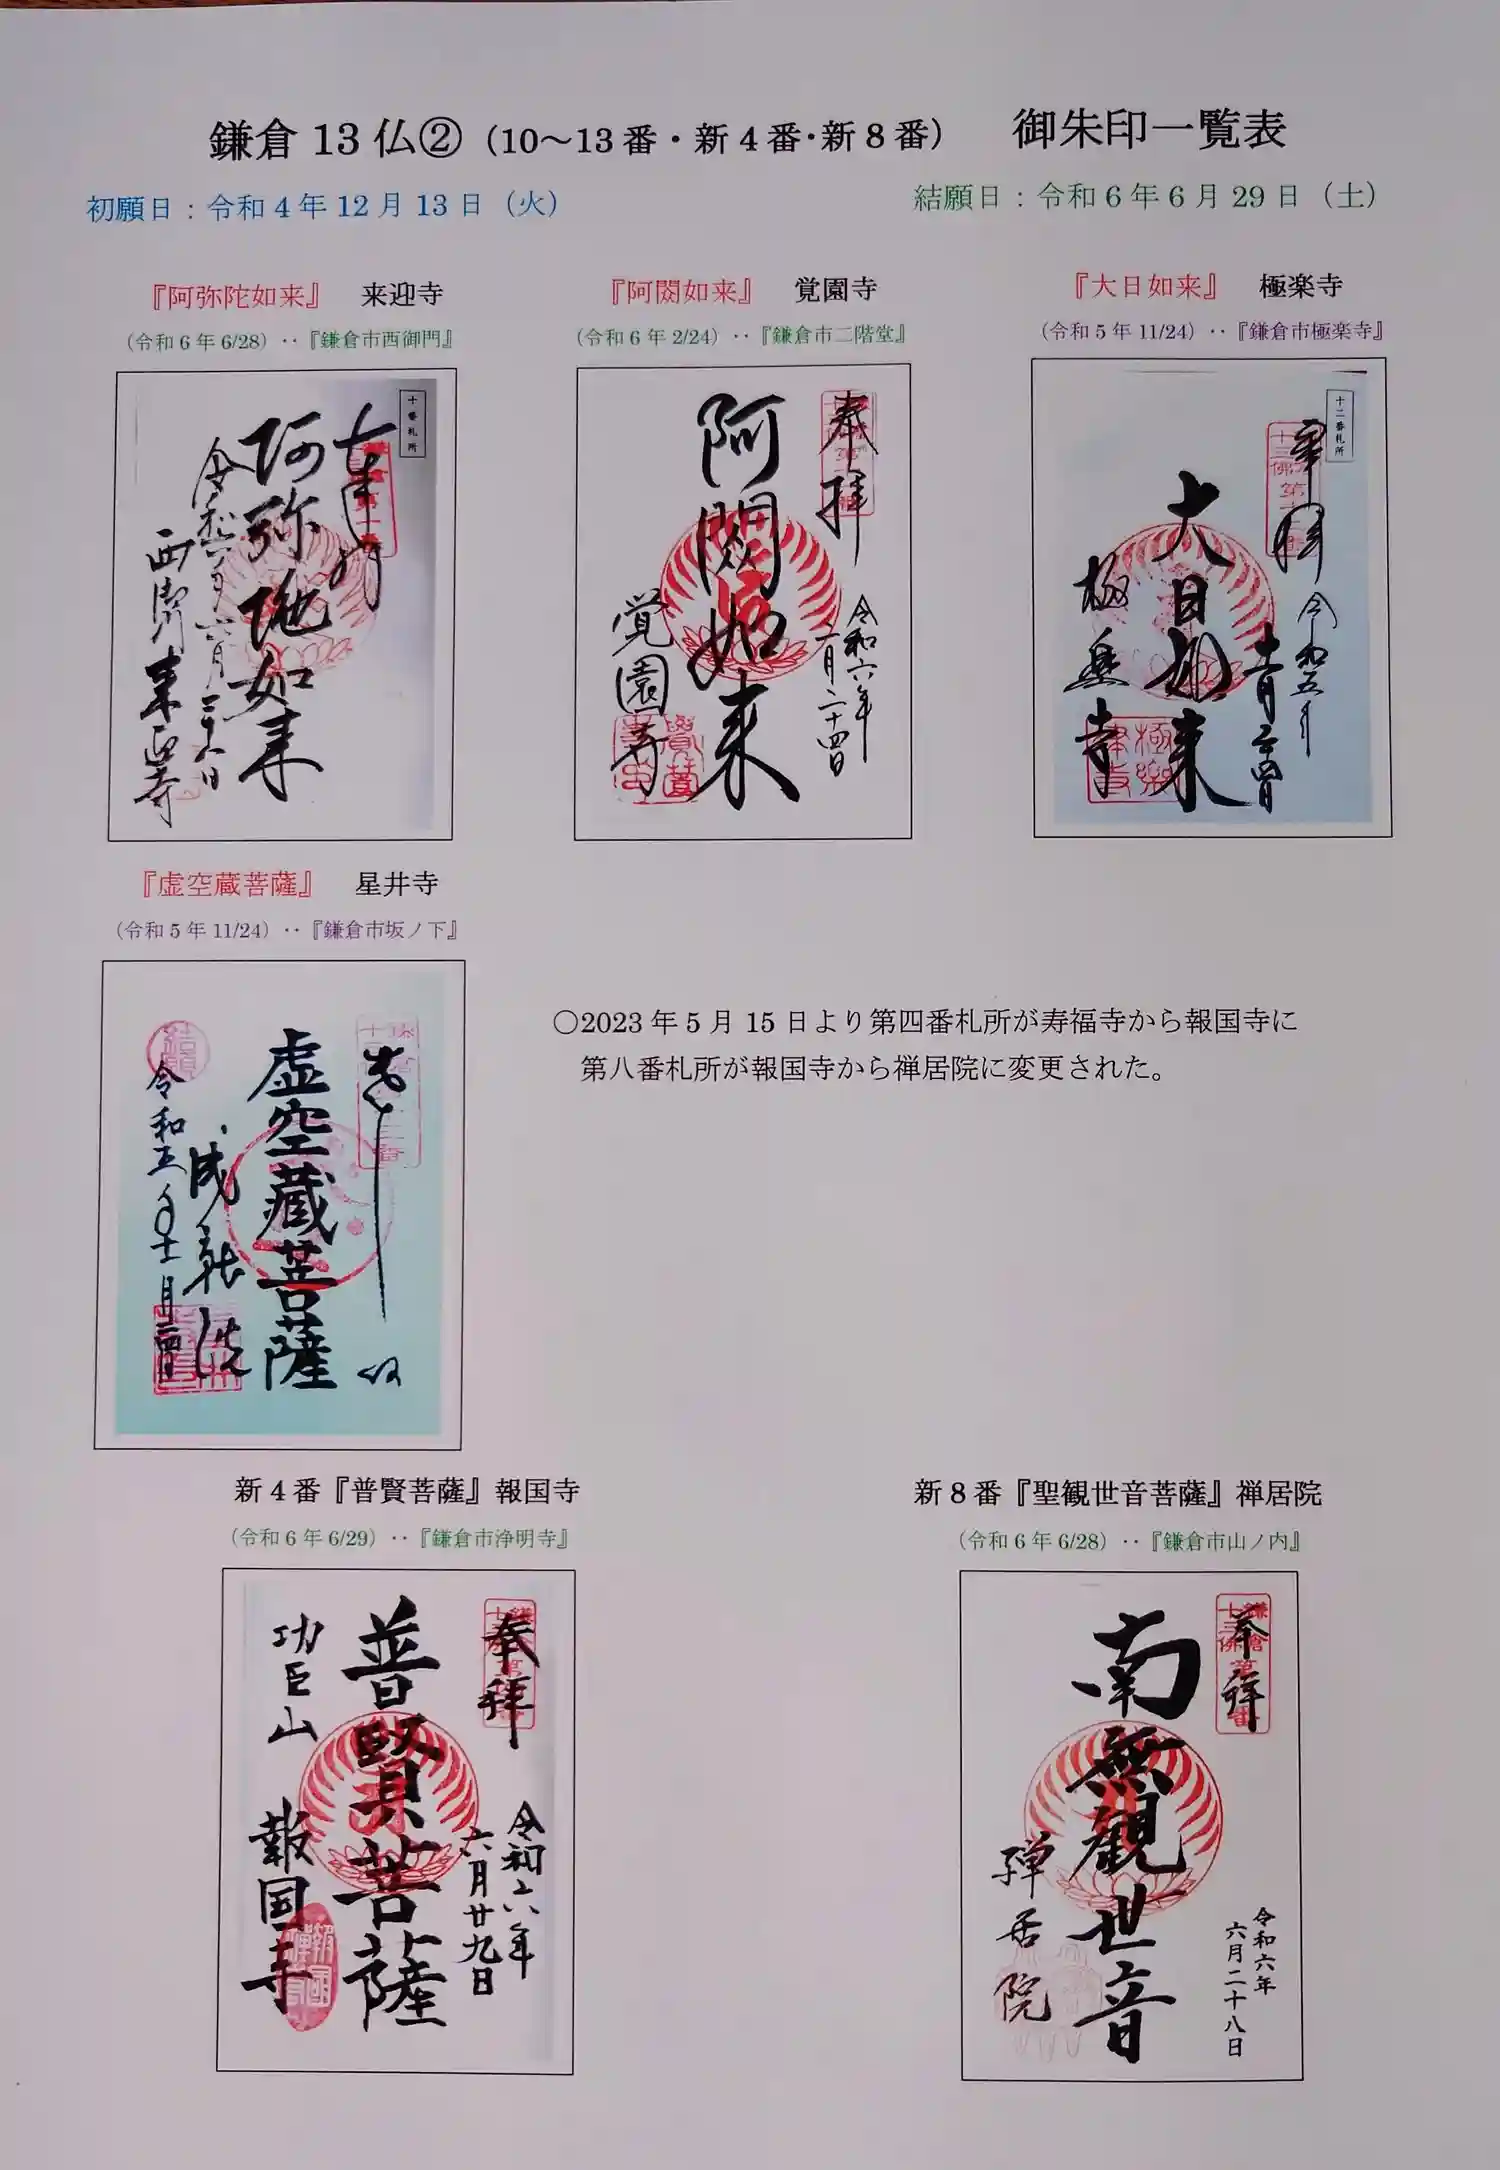 鎌倉13仏②（10～13番・新4番･新8番）　御朱印一覧表
初願日：令和4年12月13日（火）
結願日：令和6年6月29日（土）
『阿弥陀如来』　来迎寺
（令和6年6/28）‥『鎌倉市西御門』
十番札所
阿弥陀如来
『阿閦如来』　覚園寺
（令和6年2/24）‥『鎌倉市二階堂』
奉拝
阿閦如来
令和六年
二月二十四日
覚園寺
『大日如来』　極楽寺
（令和5年11/24）‥『鎌倉市極楽寺』
十二番札所
奉拝
大日如来
極楽寺
『虚空蔵菩薩』　星井寺
（令和5年11/24）‥『鎌倉市坂ノ下』
虚空蔵菩薩
成就院
〇2023年5月15日より第四番札所が寿福寺から報国寺に
第八番札所が報国寺から禅居院に変更された。
新4番『普賢菩薩』報国寺
（令和6年6/29）‥『鎌倉市浄明寺』
奉拝
令和六年
六月廿九日
普賢菩薩
功臣山　報国寺
新8番『聖観世音菩薩』禅居院
（令和6年6/28）‥『鎌倉市山ノ内』
奉拝
令和六年
六月二十八日
南無観世音
禅居院